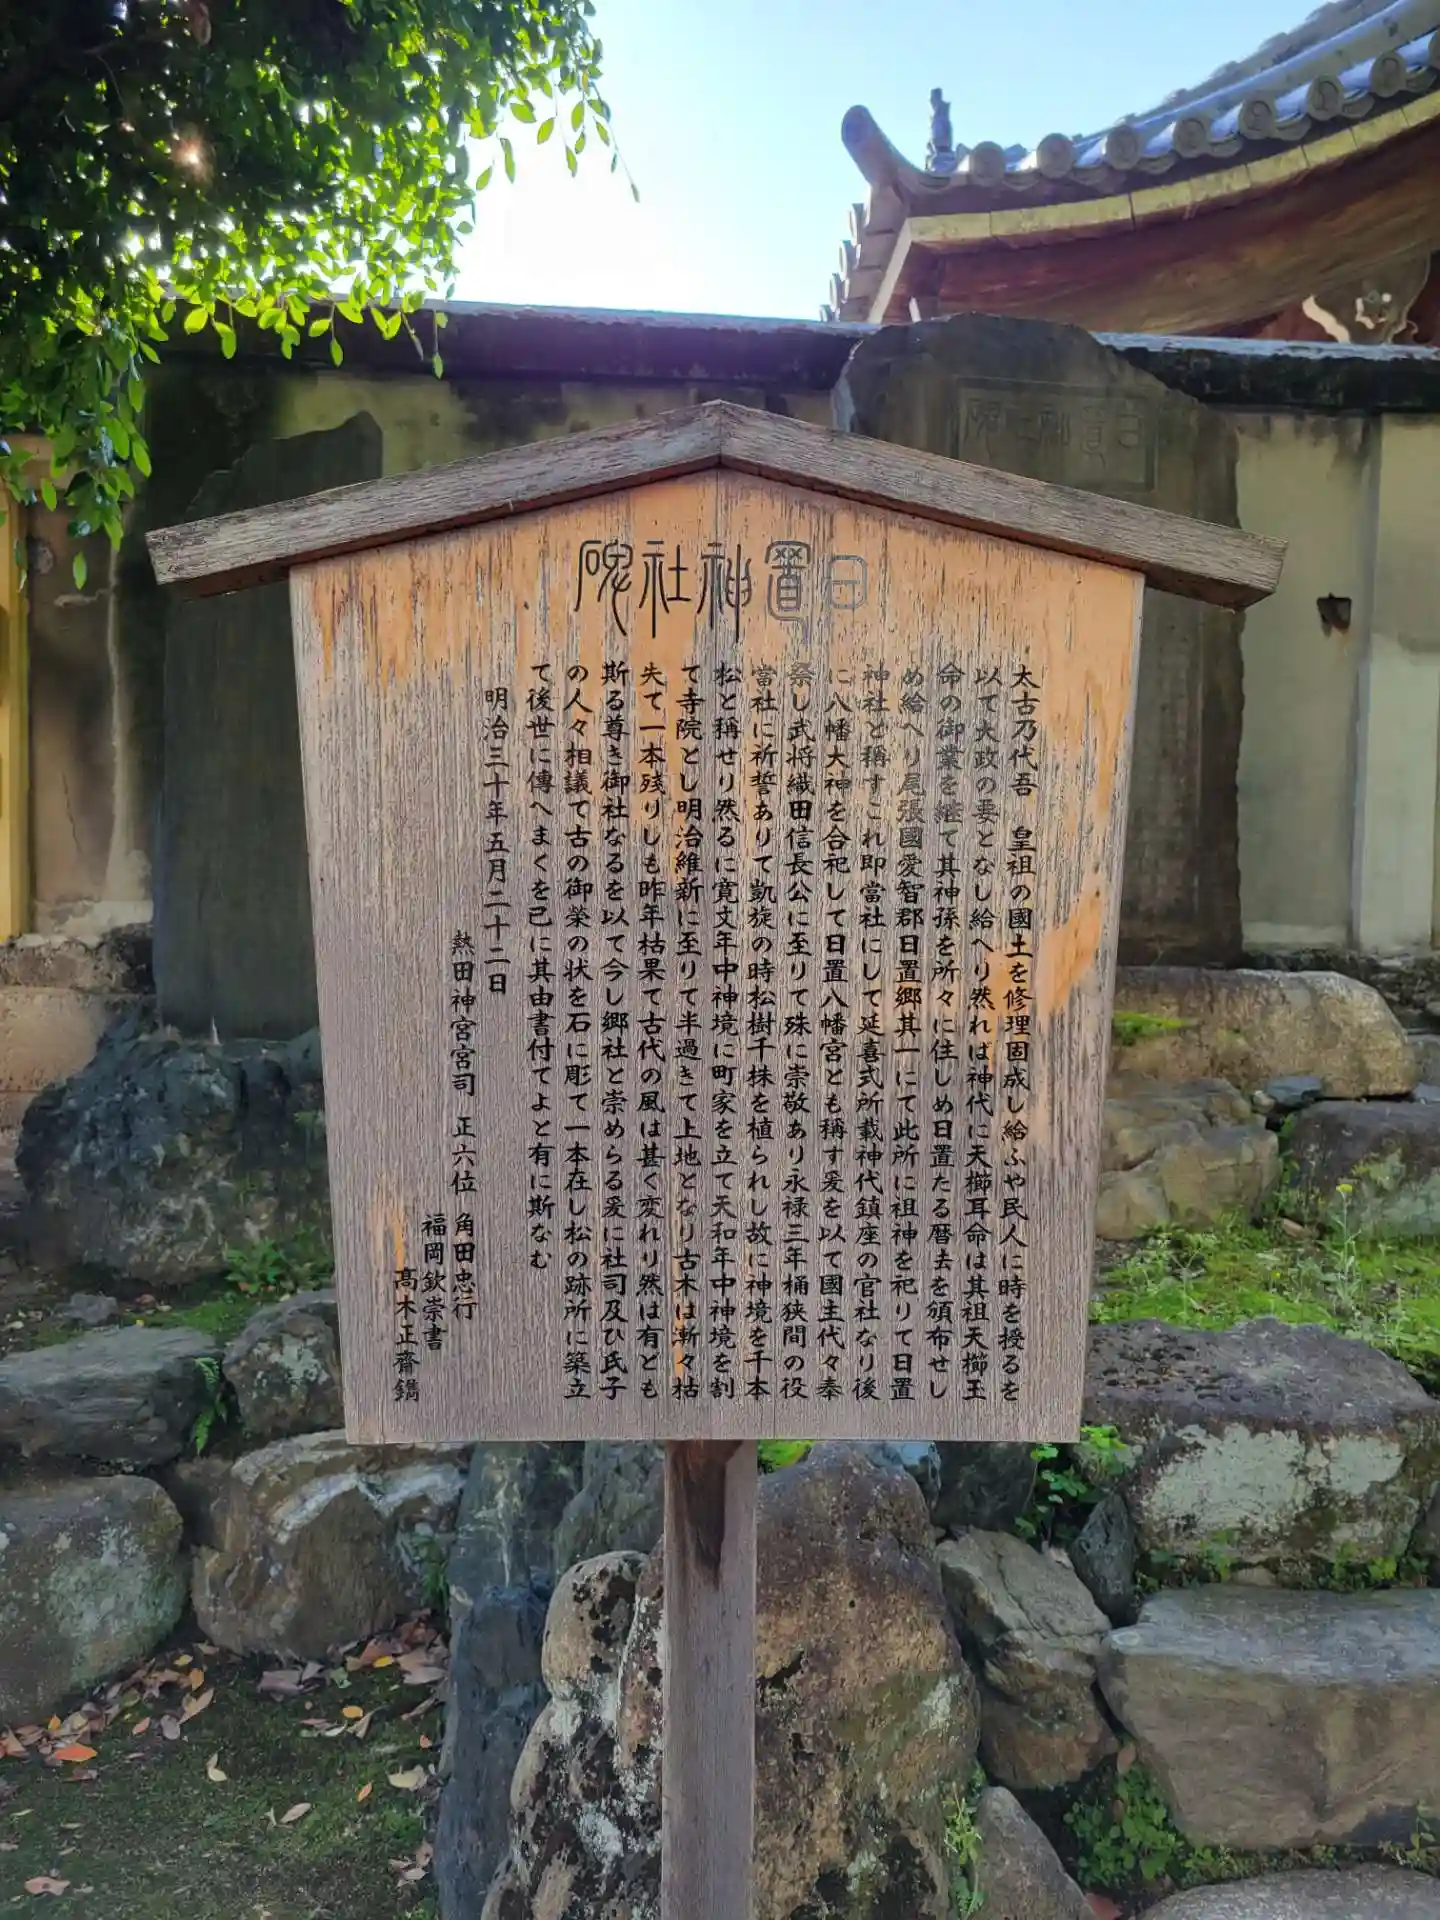 日置神社碑
太古乃代吾 皇祖の國土を修理固成し給ふや民人に時を授るを
以て大政の要となし給へり然れば神代に天櫛耳命は其祖天櫛玉
命の御業を継て其神孫を所々に住しめ日置たる暦去を頒布せし
め給へり尾張國愛智郡日置郷其一にて此所に祖神を祀りて日置
神社と稱すこれ即當社にして延喜式所載神代鎮座の官社なり後
に八幡大神を合祀して日置八幡宮とも稱す爰を以て國主代々奉
祭し武将織田信長公に至りて殊に崇敬あり永禄三年桶狭間の役
當社に祈誓ありて凱旋の時松樹千株を植られし故に神境を千本
松と稱せり然るに寛文年中神境に町家を立て天和年中神境を割
て寺院とし明治維新に至りて半過きて上地となり古木は漸々枯
失て一本残りしも昨年枯果て古代の風は甚く変れり然は有とも
斯る尊き御社なるを以て今し郷社と崇めらる爰に社司及ひ氏子
の人々相議て古の御榮の状を石に彫て一本在し松の跡所に築立
て後世に傳へまくを已に其由書付てよと有に斯なむ
明治三十年五月二十二日
熱田神宮宮司 正六位 角田忠行
福岡欽崇書
高木正齋鐫
日置神社碑